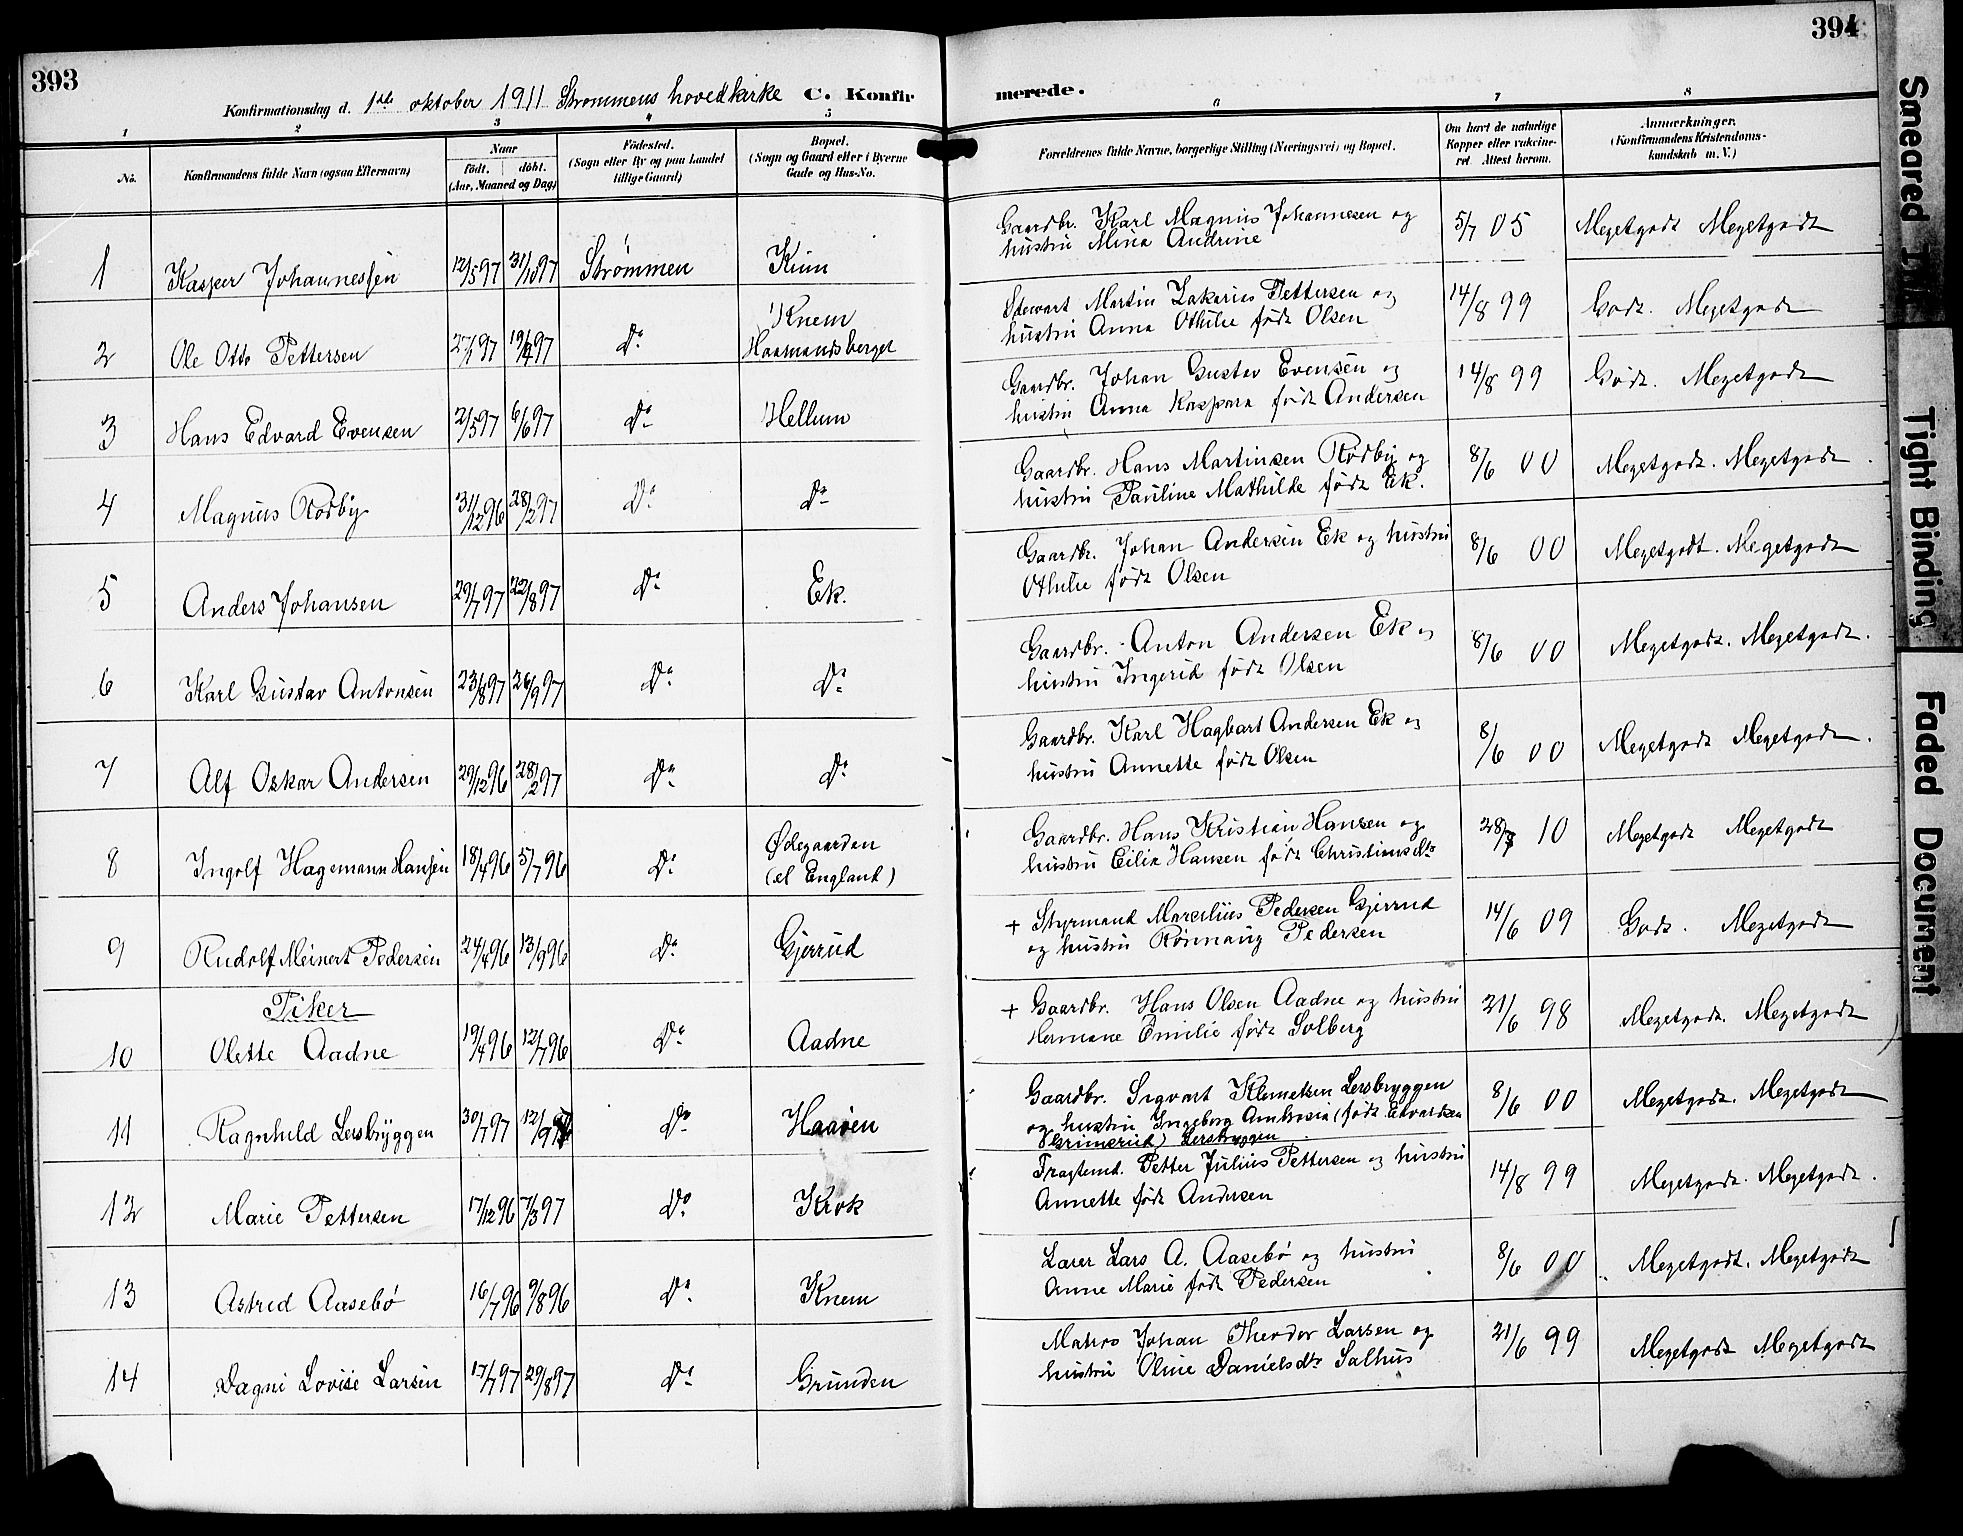 393
394
Konfirmationsdag d. 1ste oktober 1911 Strømmens hovedkirke C. Konfirmerede.
1 2 3 4 5 6 7 8
No.
Konfirmandens fulde Navn (ogsaa Efternavn)
Naar
født.
døbt.
(Aar, Maaned og Dag)
Fødested.
(Sogn eller By og paa Landet
tillige Gaard)
Bopæl.
(Sogn og Gaard eller i Byerne
Gade og Hus-No.
Forældrenes fulde Navne, borgerlige Stilling (Næringsvei) og Bopæl.
Om havt de naturlige
Kopper eller vakcine-
ret. Attest herom.
Anmærkninger.
(Konfirmandens Kristendoms-
kundskab m. V.)
1 Kasper Johannessen 12/5 97 31/10 97 Strømmen Knim
Gaardbr. Karl Magnus Johannesen og
hustru Mina Andrine
5/7 05 Megetgodt Megetgodt
2 Ole Otto Pettersen 27/1 97 19/4 97 Do
Knem
Haamandsberget
Stewart Martin Zakarias Pettersen og
hustru Anna Othilie født Olsen
14/8 99 Godt. Megetgodt
3 Hans Edvard Evensen 2/5 97 6/6 97 Do Hellum
Gaardbr. Johan Gustav Evensen og
hustru Anna Kaspara født Andersen
14/8 99 Godt. Megetgodt
4 Magnus Rødby 31/12 96 28/2 97 Do Do
Gaardbr. Hans Martinsen Rødby og
hustru Pauline Mathilde født Ek.
8/6 00 Megetgodt. Megetgodt.
5 Anders Johansen 29/7 97 22/8 97 Do Ek.
Gaardbr. Johan Andersen Ek og hustru
Othilie født Olsen
8/6 00 Megetgodt. Megetgodt
6 Karl Gustav Antonsen 23/8 97 26/9 97 Do Do
Gaardbr. Anton Andersen Ek og
hustru Ingerid født Olsen
8/6 00 Megetgodt. Megetgodt.
7 Alf Oskar Andersen 29/12 96 28/2 97 Do Do
Gaardbr. Karl Hagbart Andersen Ek og
hustru Annette født Olsen
8/6 00 Megetgodt Megetgodt.
8 Ingolf Hagemann Hansen 18/4 96 5/7 96 Do
Ødegaarden
(et England)
Gaardbr. Hans Kristian Hansen og
hustru Eilia Hansen født Christiansdtr
28/7 10 Megetgodt Megetgodt
9 Rudolf Meinert Pedersen 24/4 96 13/9 96 Do Gjerrud
+ Styrmand Marselius Pedersen Gjerrud
og hustru Rønnaug Pedersen
14/6 09 Godt. Megetgodt
Piker
10 Olette Aadne 19/4 96 12/7 96 Do Aadne
+ Gaardbr. Hans Olsen Aadne og hustru
Hermane Emilie født Solberg
21/6 98 Megetgodt. Megetgodt
11 Ragnhild Lersbryggen 30/7 97 12/9 97 Do Haaven
Gaardbr. Sigvart Klemetsen Lersbryggen
og hustru Ingeborg Ambrosia (født Edvardsen
Grimsrud) Lersbryggen
8/6 00 Megetgodt. Megetgodt
12 Marie Pettersen 17/12 96 7/3 97 Do Krok
Fragtemd. Petter Julius Pettersen og hustru
Annette født Andersen
14/8 99 Megetgodt. Megetgodt.
13 Astrid Aasebø 16/7 96 9/8 96 Do Knem
Lærer Lars A. Aasebø og hustru
Anne Marie født Pedersen
8/6 00 Megetgodt. Megetgodt
14 Dagni Lovise Larsen 17/7 97 29/8 97 Do Grunden
Matros Johan Theodor Larsen og
hustru Oline Danielsdtr Salhus
21/6 99 Megetgodt Megetgodt
Smeared Ink
Tight Binding
Faded Document